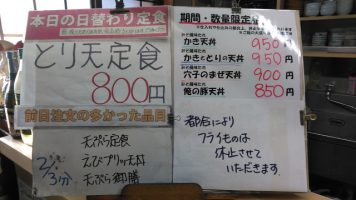 本日の日替わり定食
とり天定食
800円
前日注文の多かった品目
2/3分
天ぷら定食
えびプリッ天丼
天ぷら御膳
期間・数量限定
かき天丼 950円
かきととり天丼 950円
穴子のまぜ天丼 900円
俺の豚天丼 850円
都合により
フライものは
休止させて
いただきます。